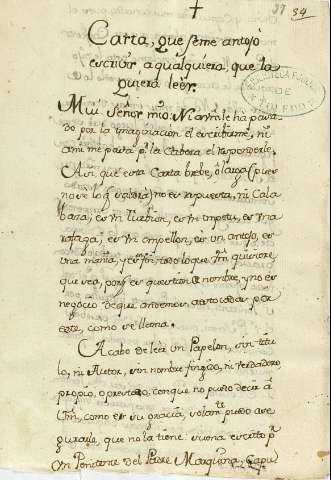 37 34
Carta, que seme antojó
escrivir a qualquiera, que la
quiera leer.
Mui Señor mio. Ni a vm le ha pasa-
do por la imaginacion el escribirme, ni
a mi me pasa pr. la Cabeza el responderle.
Asi, que esta Carta brebe, ò larga (pues
no sè lo q. saldrà) no es repuesta, ni Cala
baza, es un turbion, es un impetu, es una
rafaga, es un empellon, es un antojo, es
una mania, y es todo lo que Vm. quisiere,
que sea, pues es question de nombre, y no es
negocio de que andemos a
este, como se llama.
Acabo de leer un Papelon, sin titu
lo, ni Autor, sin nombre fingido, ni verdadero
propio, o prestado, con que no puedo decir à
Vm, como es su gracia, solamte. puedo ase
gurarle, que no la tiene. Suena escrito pr.
un Penitente del Padre Marquina, Capu